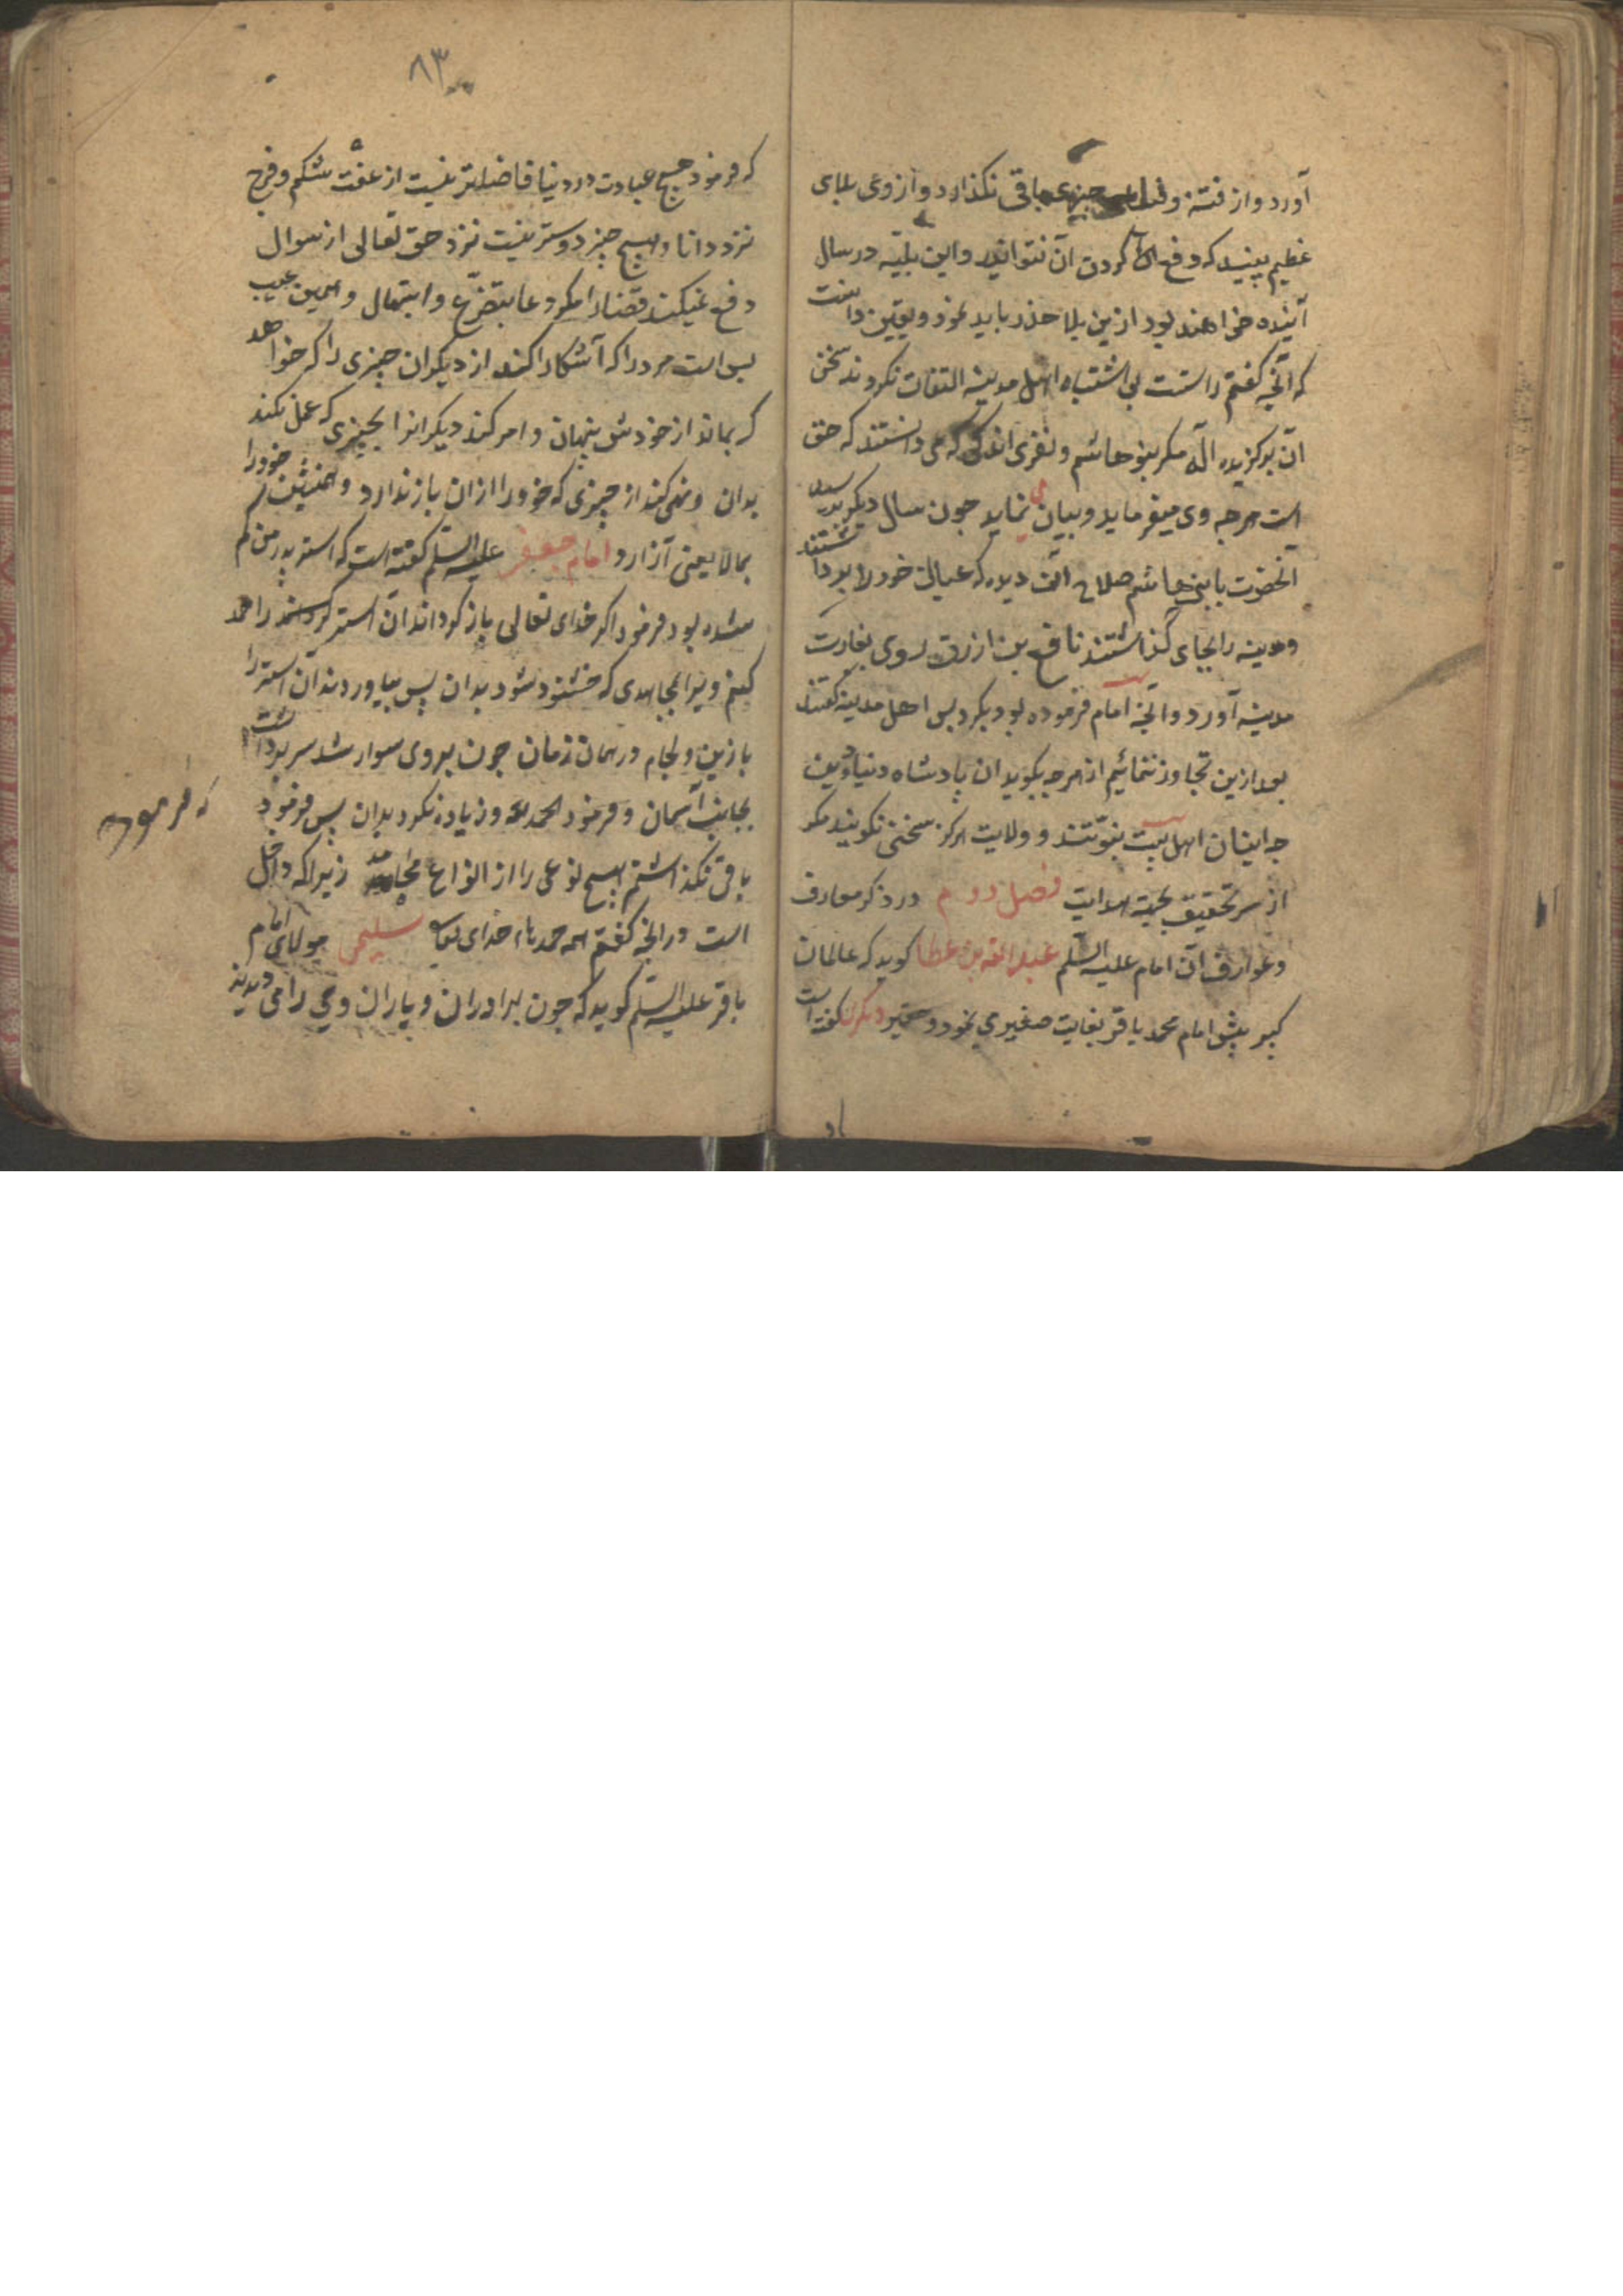 آورد و از فتنه و فساد چیزی باقی نگذارد و از وی بلای
عظیم ببینید که دفع کردن آن نتوانید و این بلیّه در سال
آینده خواهند بود ازین بلا حذر باید نمود و یقین دانست
که آنچه گفتم راستست بی اشتباه اهل مدینه التفات نکردند سخن
آن برگزیده اله مگر بنو هاشم و نفری اندکی که می دانستند که حق
است هرچه وی میفرماید و بیان می نماید چون سال دیگر برسید
آنحضرت با بنی هاشم صلاح آن دیده که عیال خود را برداشتند
و مدینه را بجای گذاشتند نافع بن ازرق روی بغارت
مدینه آورد و آنچه امام فرموده بود بکرد پس اهل مدینه گفتند
بعد ازین تجاوز ننمائیم از هرچه بگوید ان پادشاه دنیا و دین
چه ایشان اهل بیت نبوّتند و ولایت هرگز سخنی نگویند مگر
از سر تحقیق بجهة هدایت فصل دوم در ذکر معارف
و عوارف آن امام علیه السّلم عبد الله بن عطا گوید که عالمان
کبیر پیش امام محمد باقر بغایت صغیری نمود و حقیر دیگر گفته است
او
۸۳
که فرمود هیچ عبادت در دنیا فاضلتر نیست از عفّت شکم و فرج
نزد دانا و هیچ چیز دوستر نیست نزد حق تعالی از سوال
دفع نمیکند قضا را مگر دعا بتضرّع و ابتهال و همین عیب
بس است مرد را که آشکارا کند از دیگران چیزی را که خواهد
که بماند از خودش پنهان و امر کند دیگرانرا بچیزی که عمل نکند
بدان و نهی کند از چیزی که خود را ازان باز ندارد و همنشین خود را
بمالا یعنی آزارد امام جعفر علیه السّلم گفته است که استر پدر من گم
شده بود فرمود اگر خدای تعالی باز گرداند آن استر خدا را حمد
کنم ویرا بمحامدی که خشنود شود بدان پس بیاوردند آن استر را
با زین و لجام در همان زمان چون بروی سوار شد سر برداشت
بجانب آسمان و فرمود الحمد لله و زیاده نکرد بدان پس فرمود
که فرمود
باقی نگذاشتم هیچ نوعی را از انواع محامد زیرا که داخل
است در آنچه گفتم همه حمدهاء خدای تعالی سلیمی مولای امام
باقر علیه السّلم گوید که چون برادران و یاران وی را می دیدند